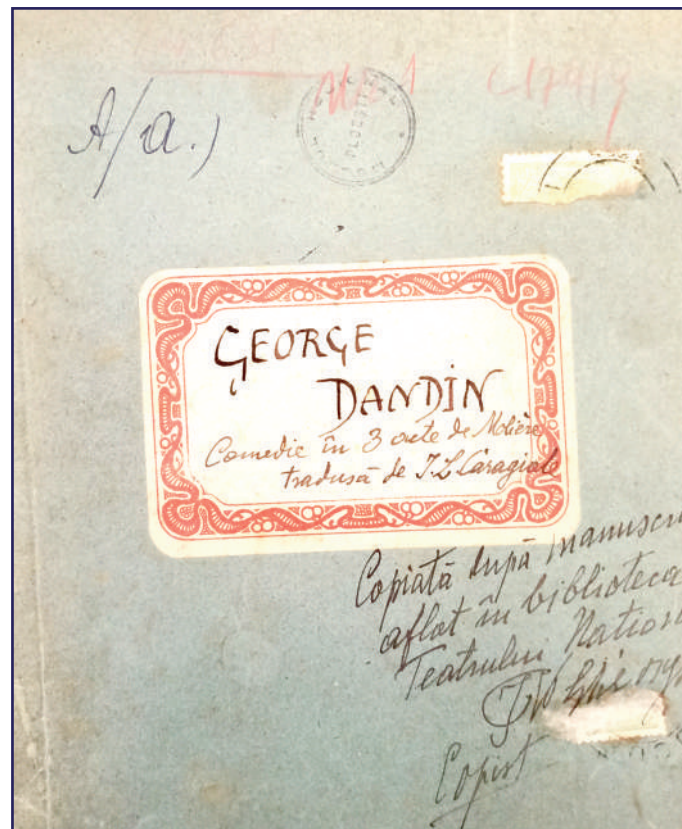 A/a.)
GEORGE
DANDIN
Comedie în 3 acte de Molière
tradusă de I. L. Caragiale
Copiată după manuscri
aflat în biblioteca
Teatrului Nation
Copist